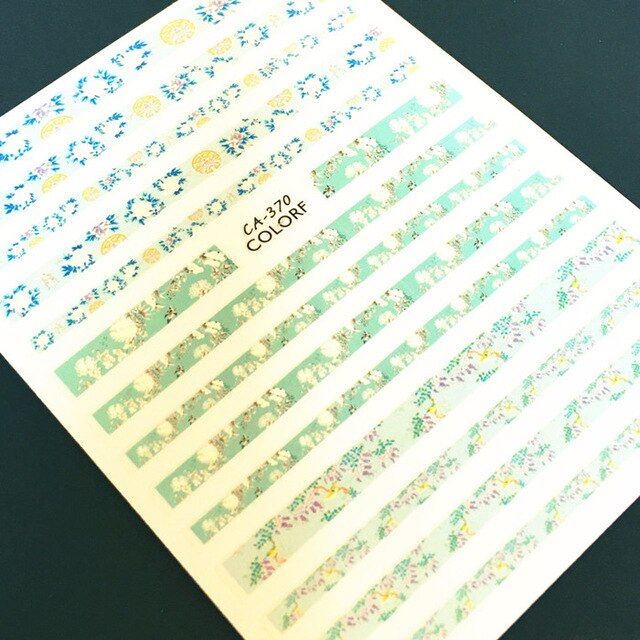 CA-370
COLORF